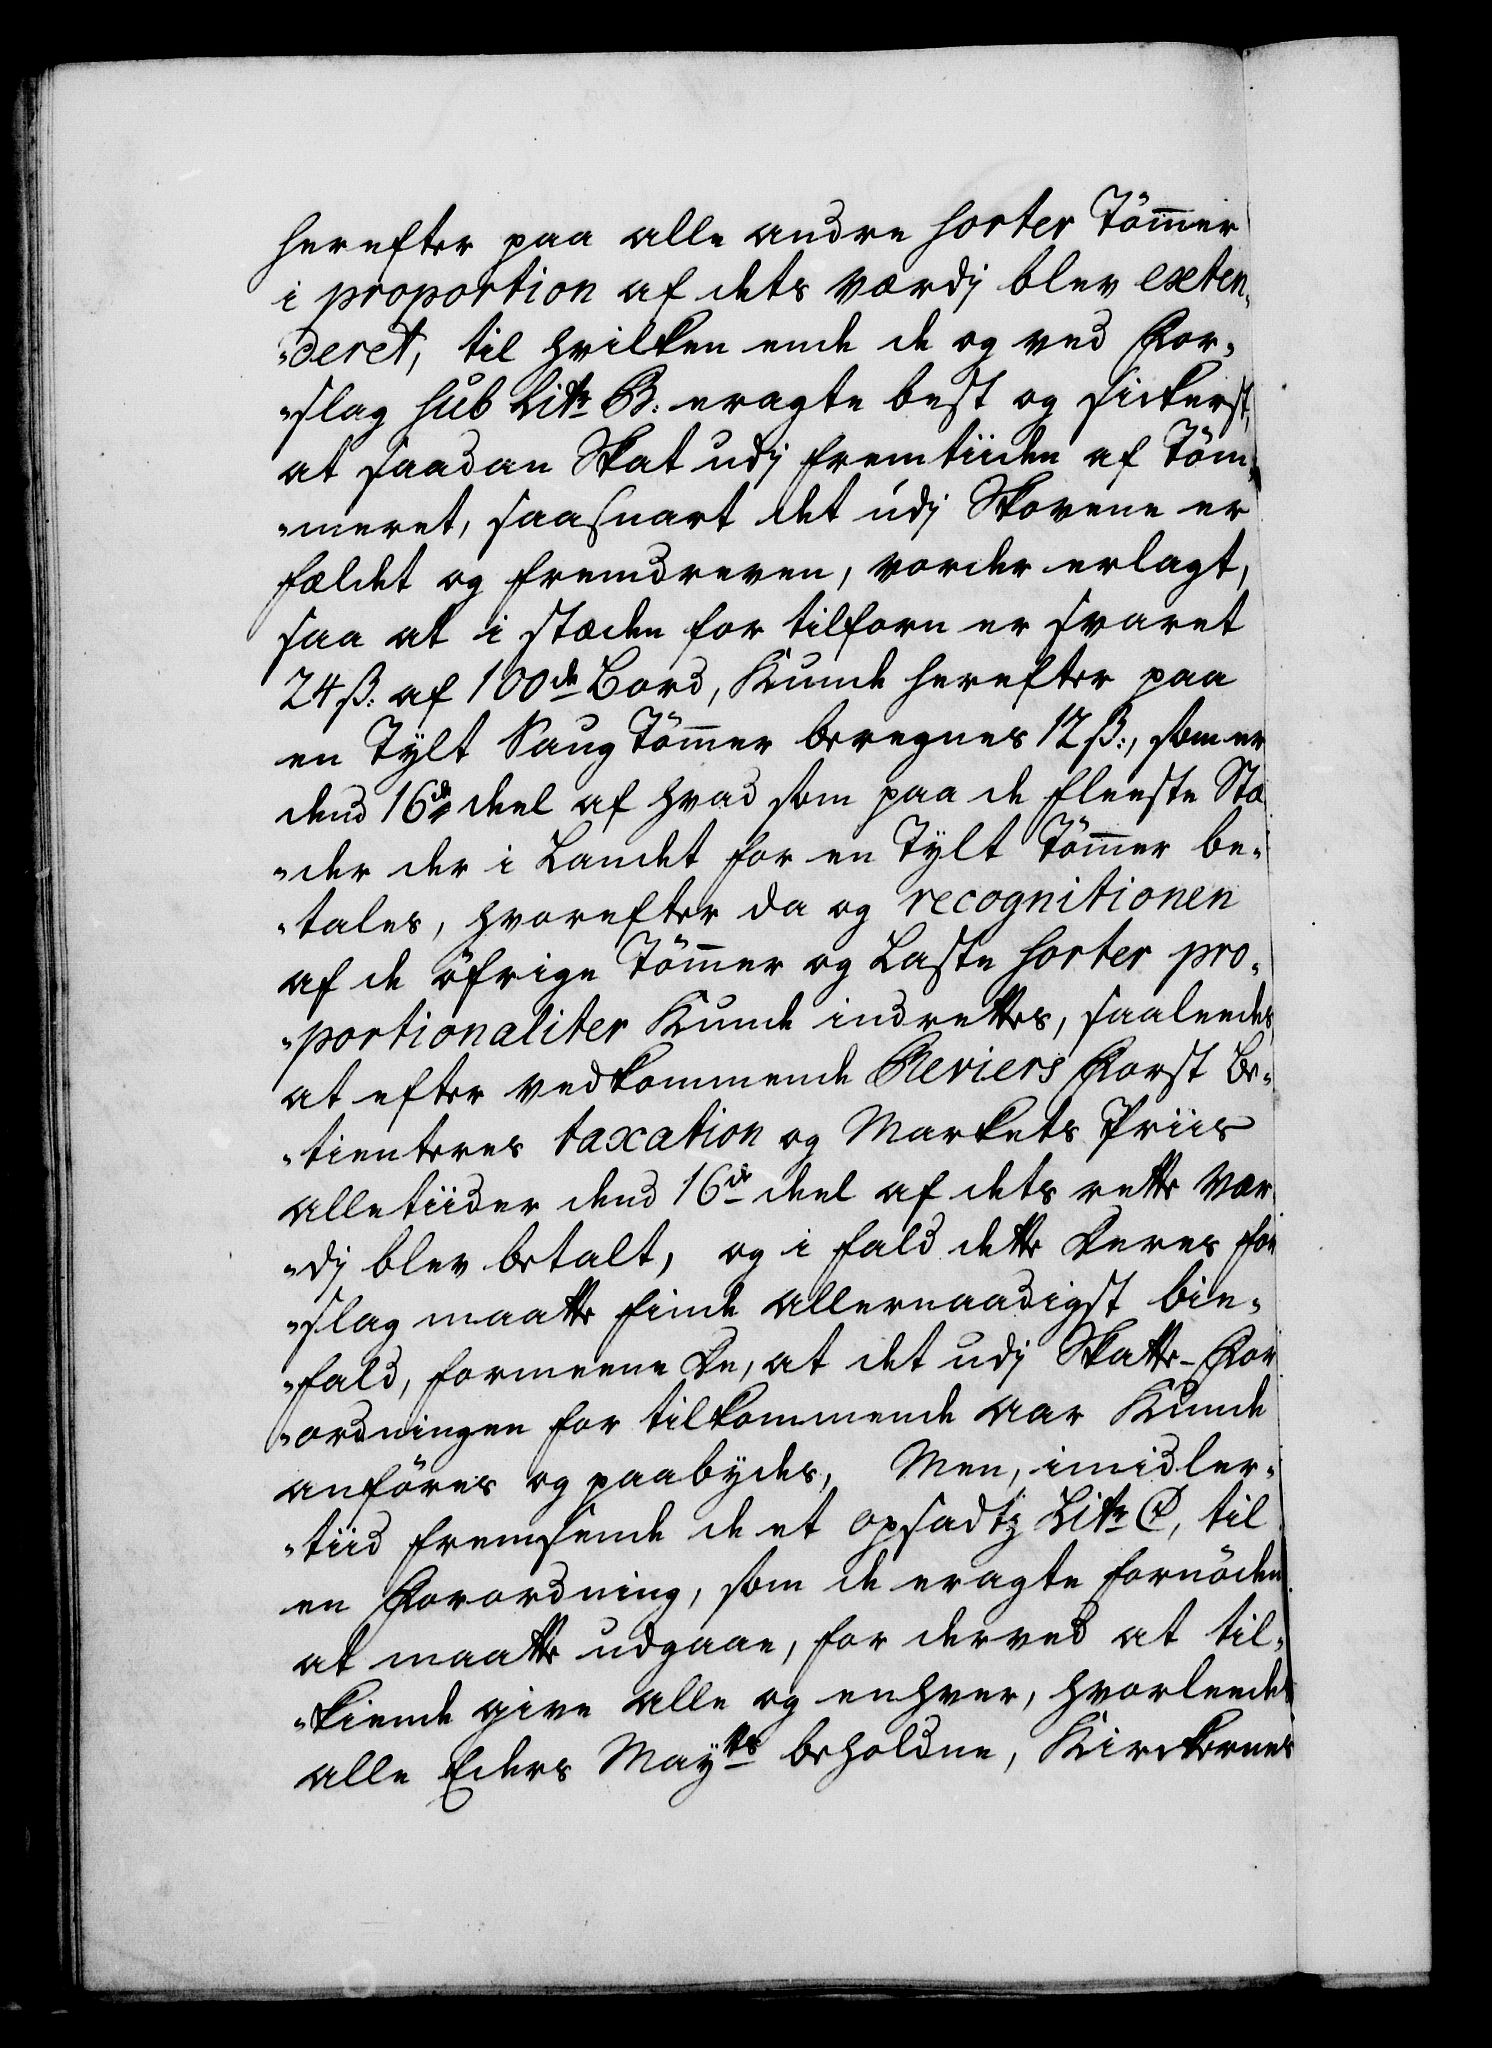 herefter paa alle andre sorter Töm̅er
i proportion af dets værdj blev exten-
-deret, til hvilken ende de og ved For-
-slag sub Litr B: eragte best og sickerst,
at saadan Skat udj fremtiiden af Töm-
-meret, saasnart det udj Skovene er
fældet og fremdreven, vorder erlagt,
saa at i stæden for tilforn er svaret
24 ß: af 100de Bord, Kunde herefter paa
en Tÿlt Saug Töm̅er beregnes 12 ß:, som er
dend 16de deel af hvad som paa de fleeste Stæ-
-der der i Landet for en Tÿlt Töm̅er be-
-tales, hvorefter da og recognitionen
af de öfrige Töm̅er og Laste sorter pro-
-portionaliter Kunde indrettes, saaleedes
at efter vedkommende Reviers Forst Be-
-tienteres taxation og Markets Priis
alletiider dend 16de deel af dets rette Vær-
-dj blev betalt, og i fald dette Deres for-
-slag maatte finde allernaadigst bie-
-fald, formeene De, at det udj Skatte-For-
-ordningen for tilkommende aar Kunde
anföres og paabÿdes, Men, imidler-
-tiid fremsende de et opsadtz Litr C, til
en Forordning, som de eragte fornöden
at maatte udgaae, for derved at til-
-kiende give alle og enhver, hvorleedes
alle Eders Mayts beholdne, Kirckernes